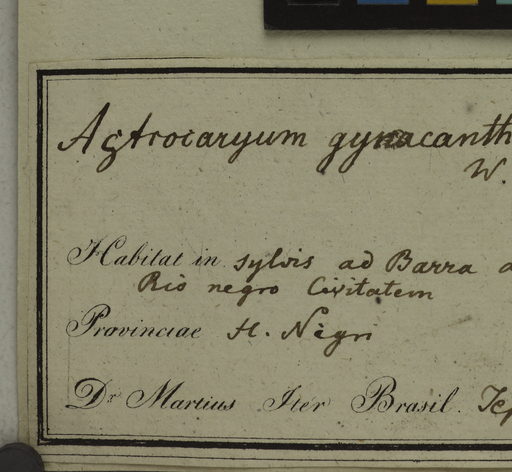 Astrocaryum gynacanth
W.
Habitat in sylvis ad Barra
Rio negro Civitatem
Provinciae fl. Nigri
Dr Martius Iter Brasil.